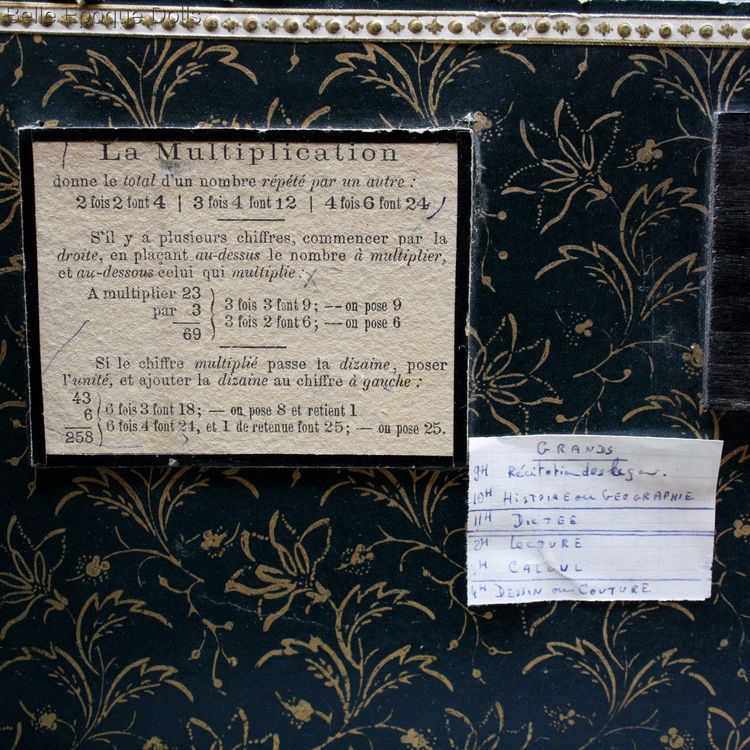 Belle Epoque Dolls
La Multiplication
donne le total d'un nombre répété par un autre :
2 fois 2 font 4 | 3 fois 4 font 12 | 4 fois 6 font 24
S'il y a plusieurs chiffres, commencer par la
droite, en plaçant au-dessus le nombre à multiplier,
et au-dessous celui qui multiplie :
A multiplier 23
par 3
69
3 fois 3 font 9; — on pose 9
3 fois 2 font 6; — on pose 6
Si le chiffre multiplié passe la dizaine, poser
l'unité, et ajouter la dizaine au chiffre à gauche :
43
6
258
6 fois 3 font 18; — on pose 8 et retient 1
6 fois 4 font 24, et 1 de retenue font 25; — on pose 25.
GRANDS
9H Récitation des leçons.
10H HISTOIRE ou GEOGRAPHIE
11H DICTEE
2H LECTURE
H CALCUL
4H DESSIN ou COUTURE